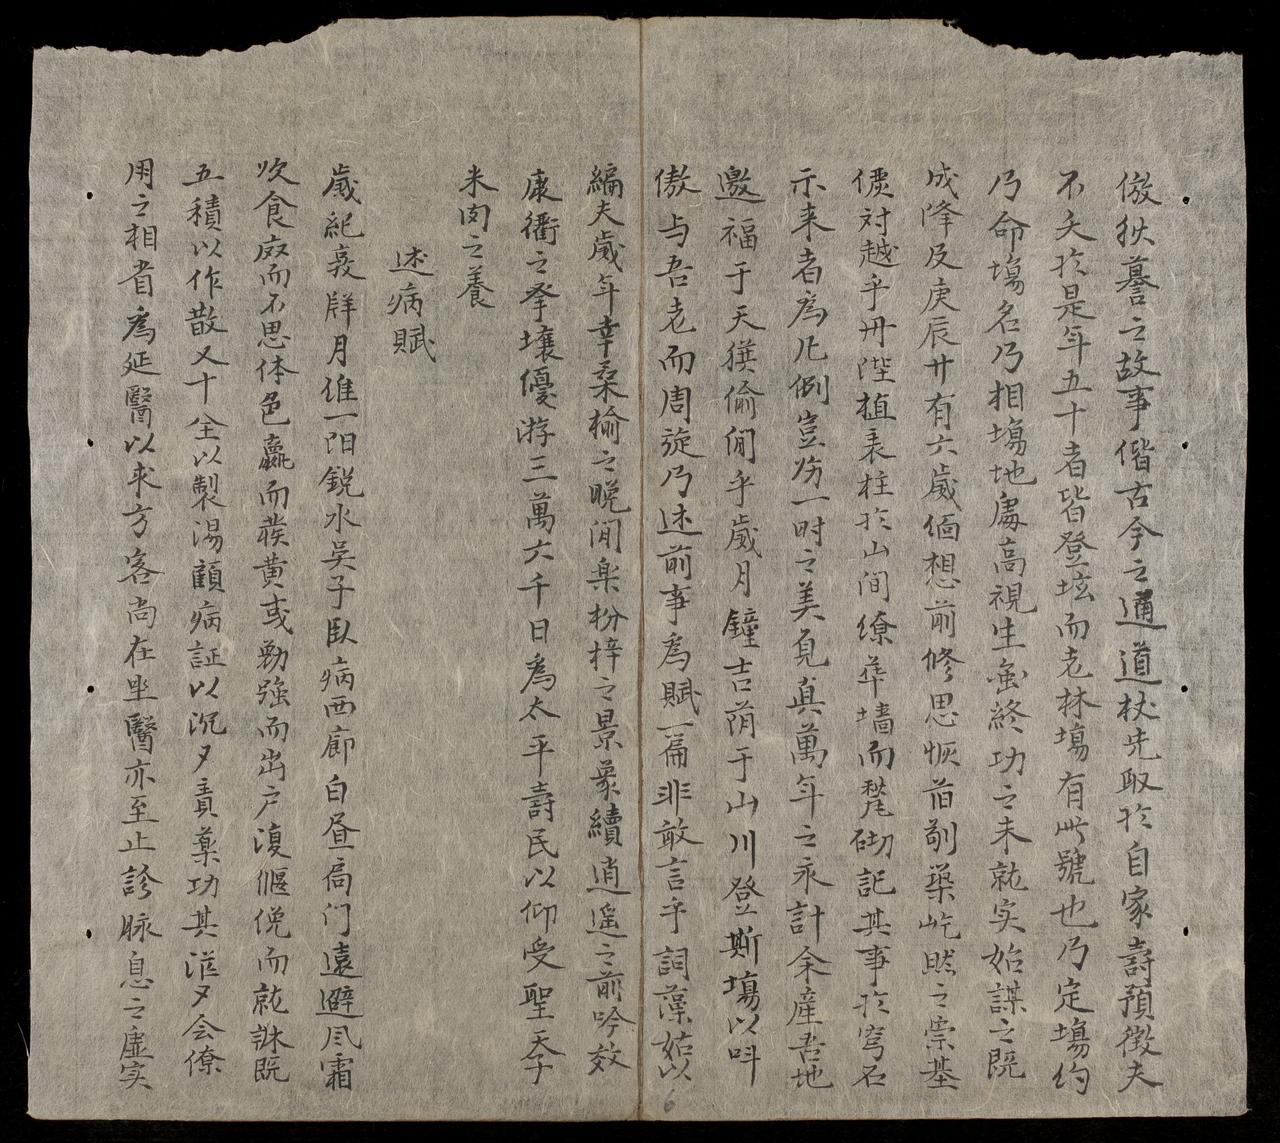 倣狄蓦之故事偕古今之通道杖先取扵自家壽預徵夫
不夭扵是年五十者皆登坛而老林塲有此號也乃定塲约
乃命塲名乃相塲地處高視生虽終功之未就实始謀之既
成降及庚辰廿有六歲缅想前修思恢旧剏築屹然之崇基
儼对越乎丹陛植表柱扵山间缭华墙而甃砌記其事扵穹石
示来者為凡例豈为一时之美覓真萬年之永計余産吾地
邀福于天猽偷閒乎歲月鐘吉荫于山川登斯塲以呌
傲与吾老而周旋乃述前事為賦一篇非敢言乎詞藻姑以
編夫歲年幸桑榆之晚閒楽枌梓之景象續逍遥之前吟效
康衢之擊壤優游三萬六千日為太平壽民以仰受聖天子
米肉之養
述病賦
歲紀亥牂月惟一阳鋭水吴子臥病西廊白昼扃门遠避风霜
吹食㡽而不思体色羸而𦾨黄或勉强而出户復偃俛而就牀既
五積以作散又十全以製湯顧病証以沉夕責藥功其茫夕会僚
用之相省為延醫以求方客尚在坐醫亦至止診脉息之虚实
6